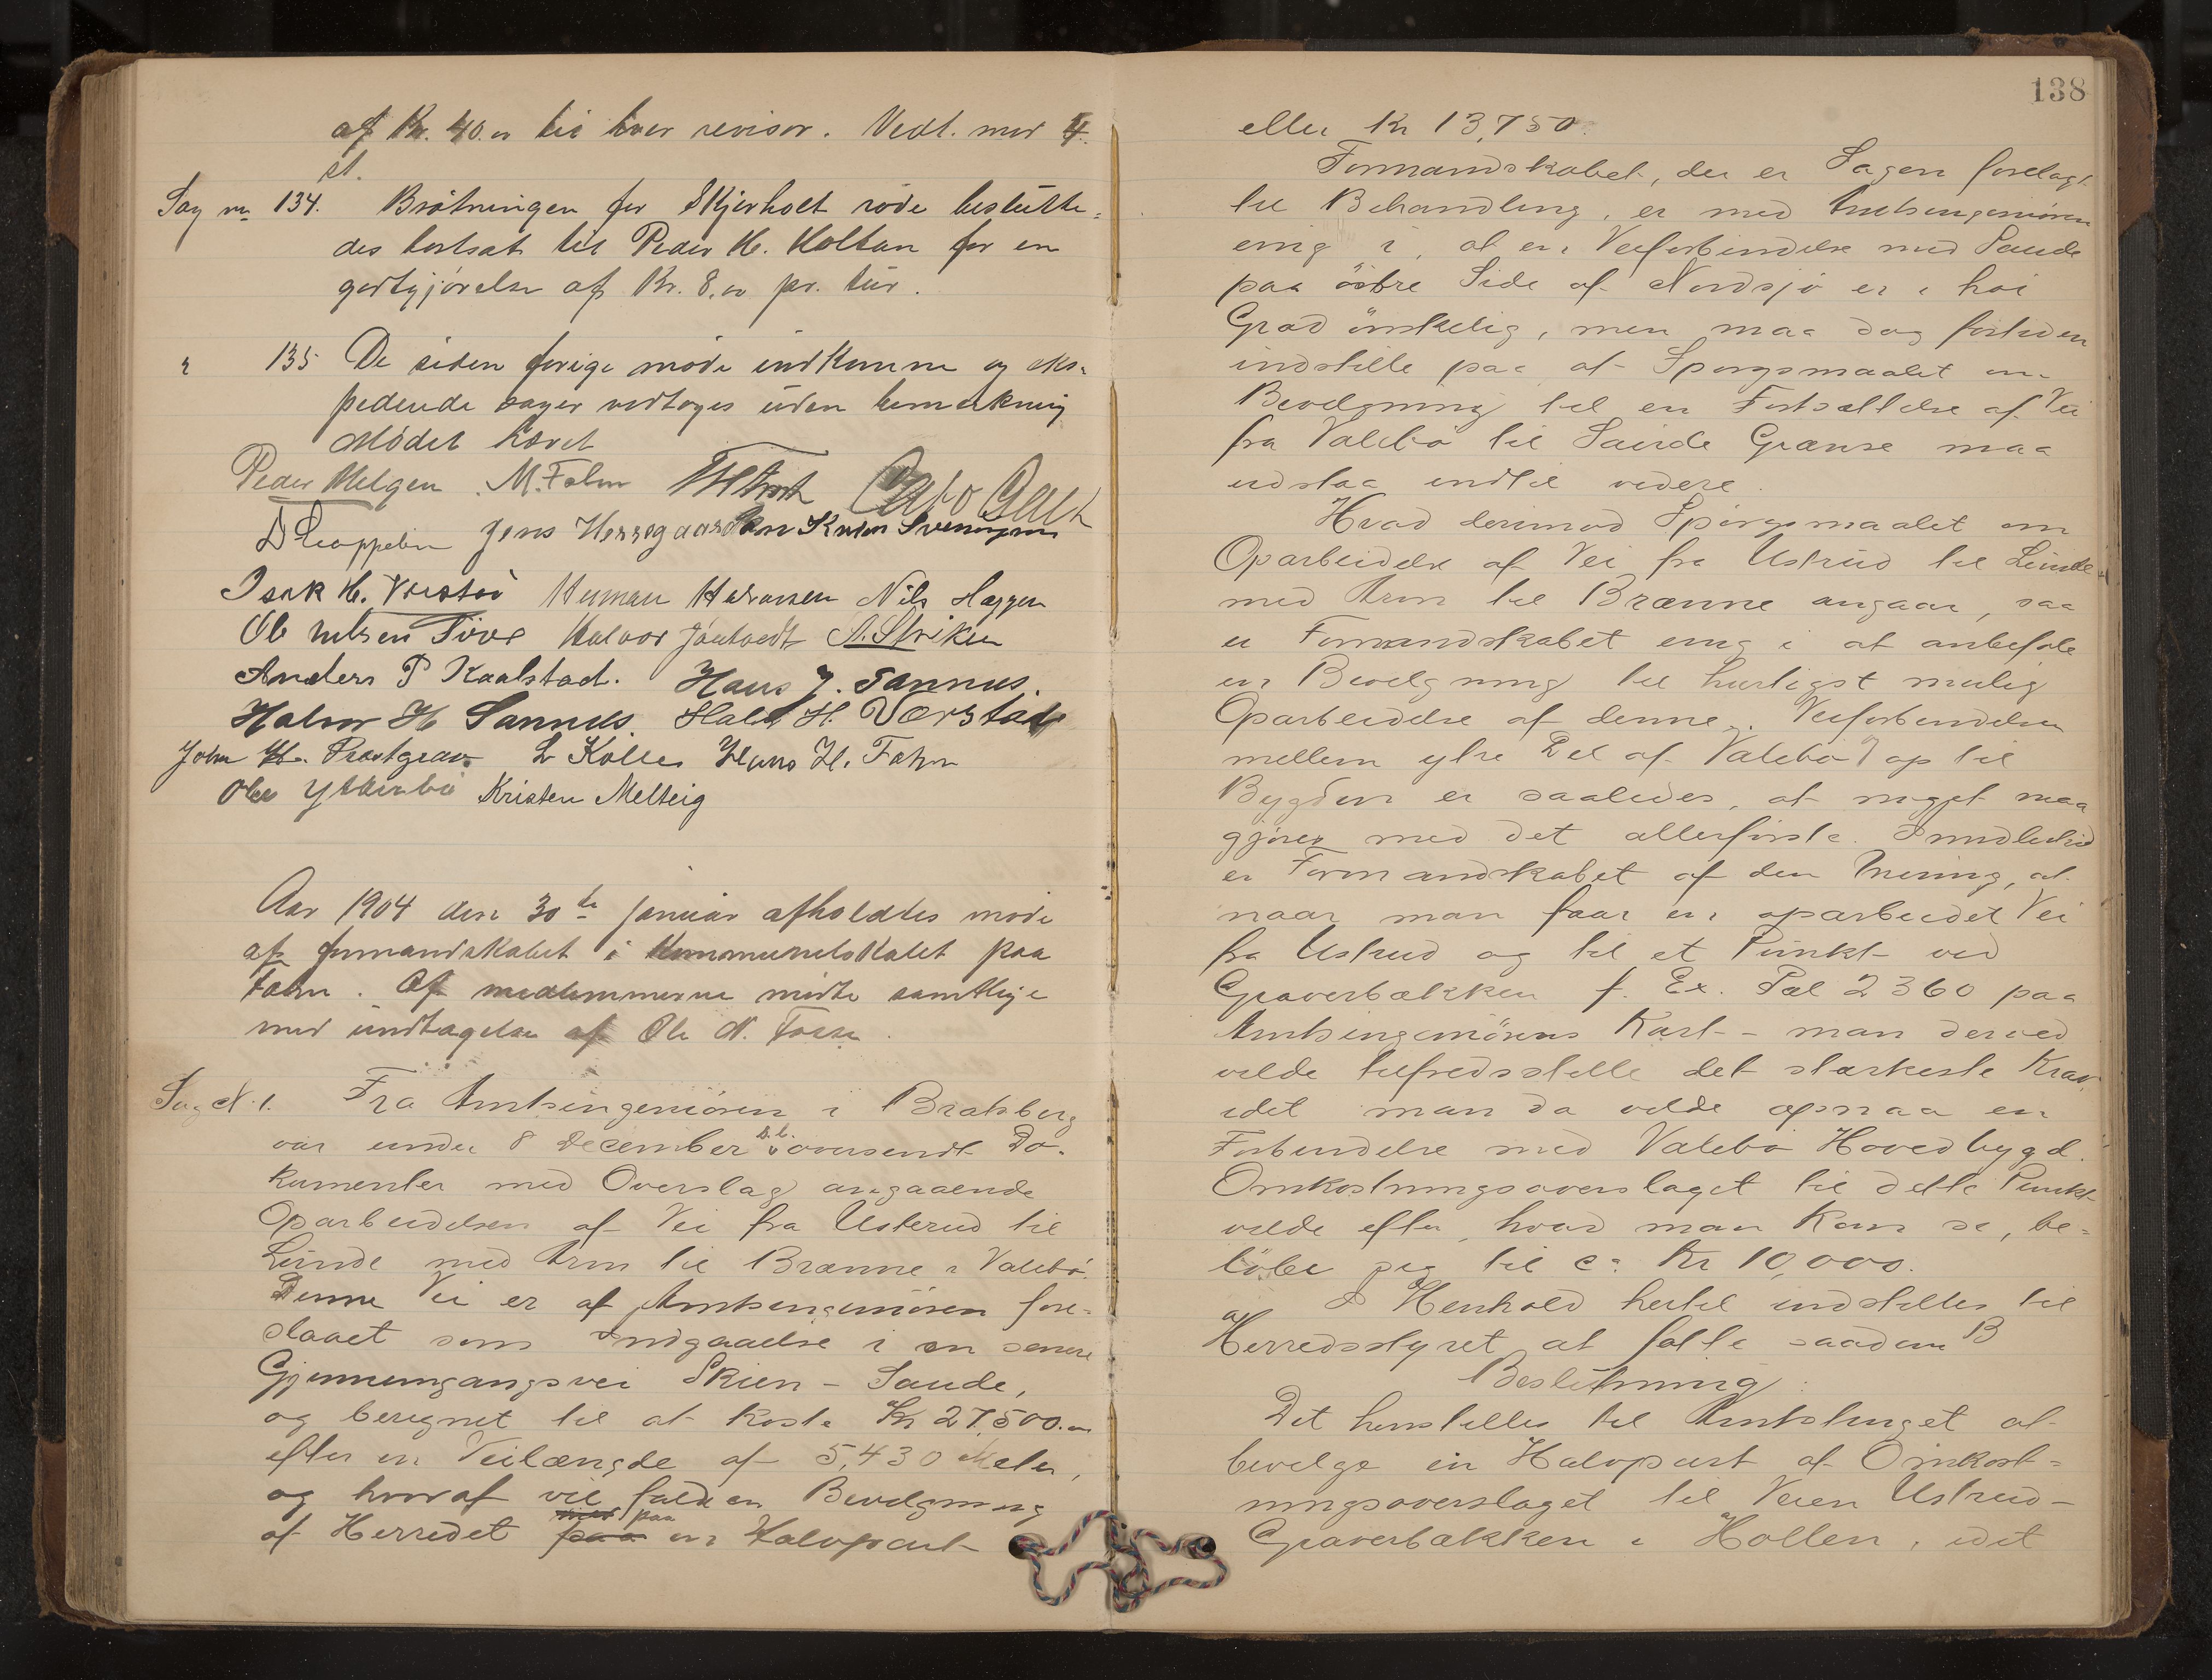 af Kr. 40.oo til hver revisor. Vedt. mod 4
st.
Sag no 134. Brøtningen for Skjerholt rode beslutte=
des bortsat til Peder H. Holtan for en
godtgjørelse af Kr. 8.oo pr. tur.
" 135 De siden forige møde indkomne og eks-
pederede sager vedtoges uden bemerkning
Mødet hævet
Peder Helgen M. Fahn
Jens Herregaarden Knud Svenungsen
Isak H. Herman Halvorsen Nils Haggen
Ole Nilsen Tove Halvor A. Striken
Anders P Kaalstad. Hans J. Sannes.
Halvor H Sannes. Halvor H. Værstad
John H. Prestgrav L Kolle Hans H. Fahn
Ole Ytterbø Kristen Melteig
Aar 1904 den 30te januar afholdtes møde
af formandskabet i kommunelokalet paa
Fahn. Af medlemmerne mødte samtlige
med undtagelse af Ole N. Tove.
Sag N. 1. Fra Amtsingeniøren i Bratsberg
var under 8 December s. l. oversendt Do-
kumenter med Overslag angaaende
Oparbeidelsen af Vei fra Usterud til
Lunde med Arm til Brænne i Valebø.
Denne Vei er af Amtsingeniøren fore-
slaaet som Indgaaelse i en senere
Gjennemgangsvei Skien - Saude,
og beregnet til at koste Kr 27,500.oo
efter en Veilængde af 5,430 Meter,
og hvoraf vil falde en Bevilgning
af Herredet paa en Halvpart
138
eller Kr 13,750.
Formandskabet, der er Sagen forelagt
til Behandling, er med Amtsingeniøren
enig i, at en Veiforbindelse med Saude
paa östre Side af Nordsjø er i høi
Grad ønskelig, men maa dog fortiden
indstille paa at Spørgsmaalet om
Bevilgning til en Fortsættelse af Vei
fra Valebø til Saude Grænse maa
udstaa indtil videre.
Hvad derimod Spørgsmaalet om
Oparbeidelse af Vei fra Ustrud til Lunde
med Arm til Brænne angaar, saa
er Formandskabet enig i at anbefale
en Bevilgning til hurtigst mulig
Oparbeidelse af denne. Veiforbindelsen
mellem ytre Del af Valebø op til
Bygden er saaledes, at noget maa
gjøres med det allerførste. Imidlertid
er Formandskabet af den Mening, at
naar man faar en oparbeidet Vei
fra Ustrud og til et Punkt ved
Graverbækken f. Ex. Pæl 2360 paa
Amtsingeniörens Kart - man derved
vilde tilfredsstille det stærkeste Krav
idet man da vilde opnaa en
Forbindelse med Valebø Hovedbygd.
Omkostningsoverslaget til dette Punkt
vilde efter, hvad man kan se, be=
løbe sig til ca Kr 10,000.
I Henhold hertil indstilles til
Herredsstyret at fatte saadan
Beslutning:
Det henstilles til Amtstinget at
bevilge en Halvpart af Omkost=
ningsoverslaget til Veien Ustrud -
Graverbækken i Hollen, idet